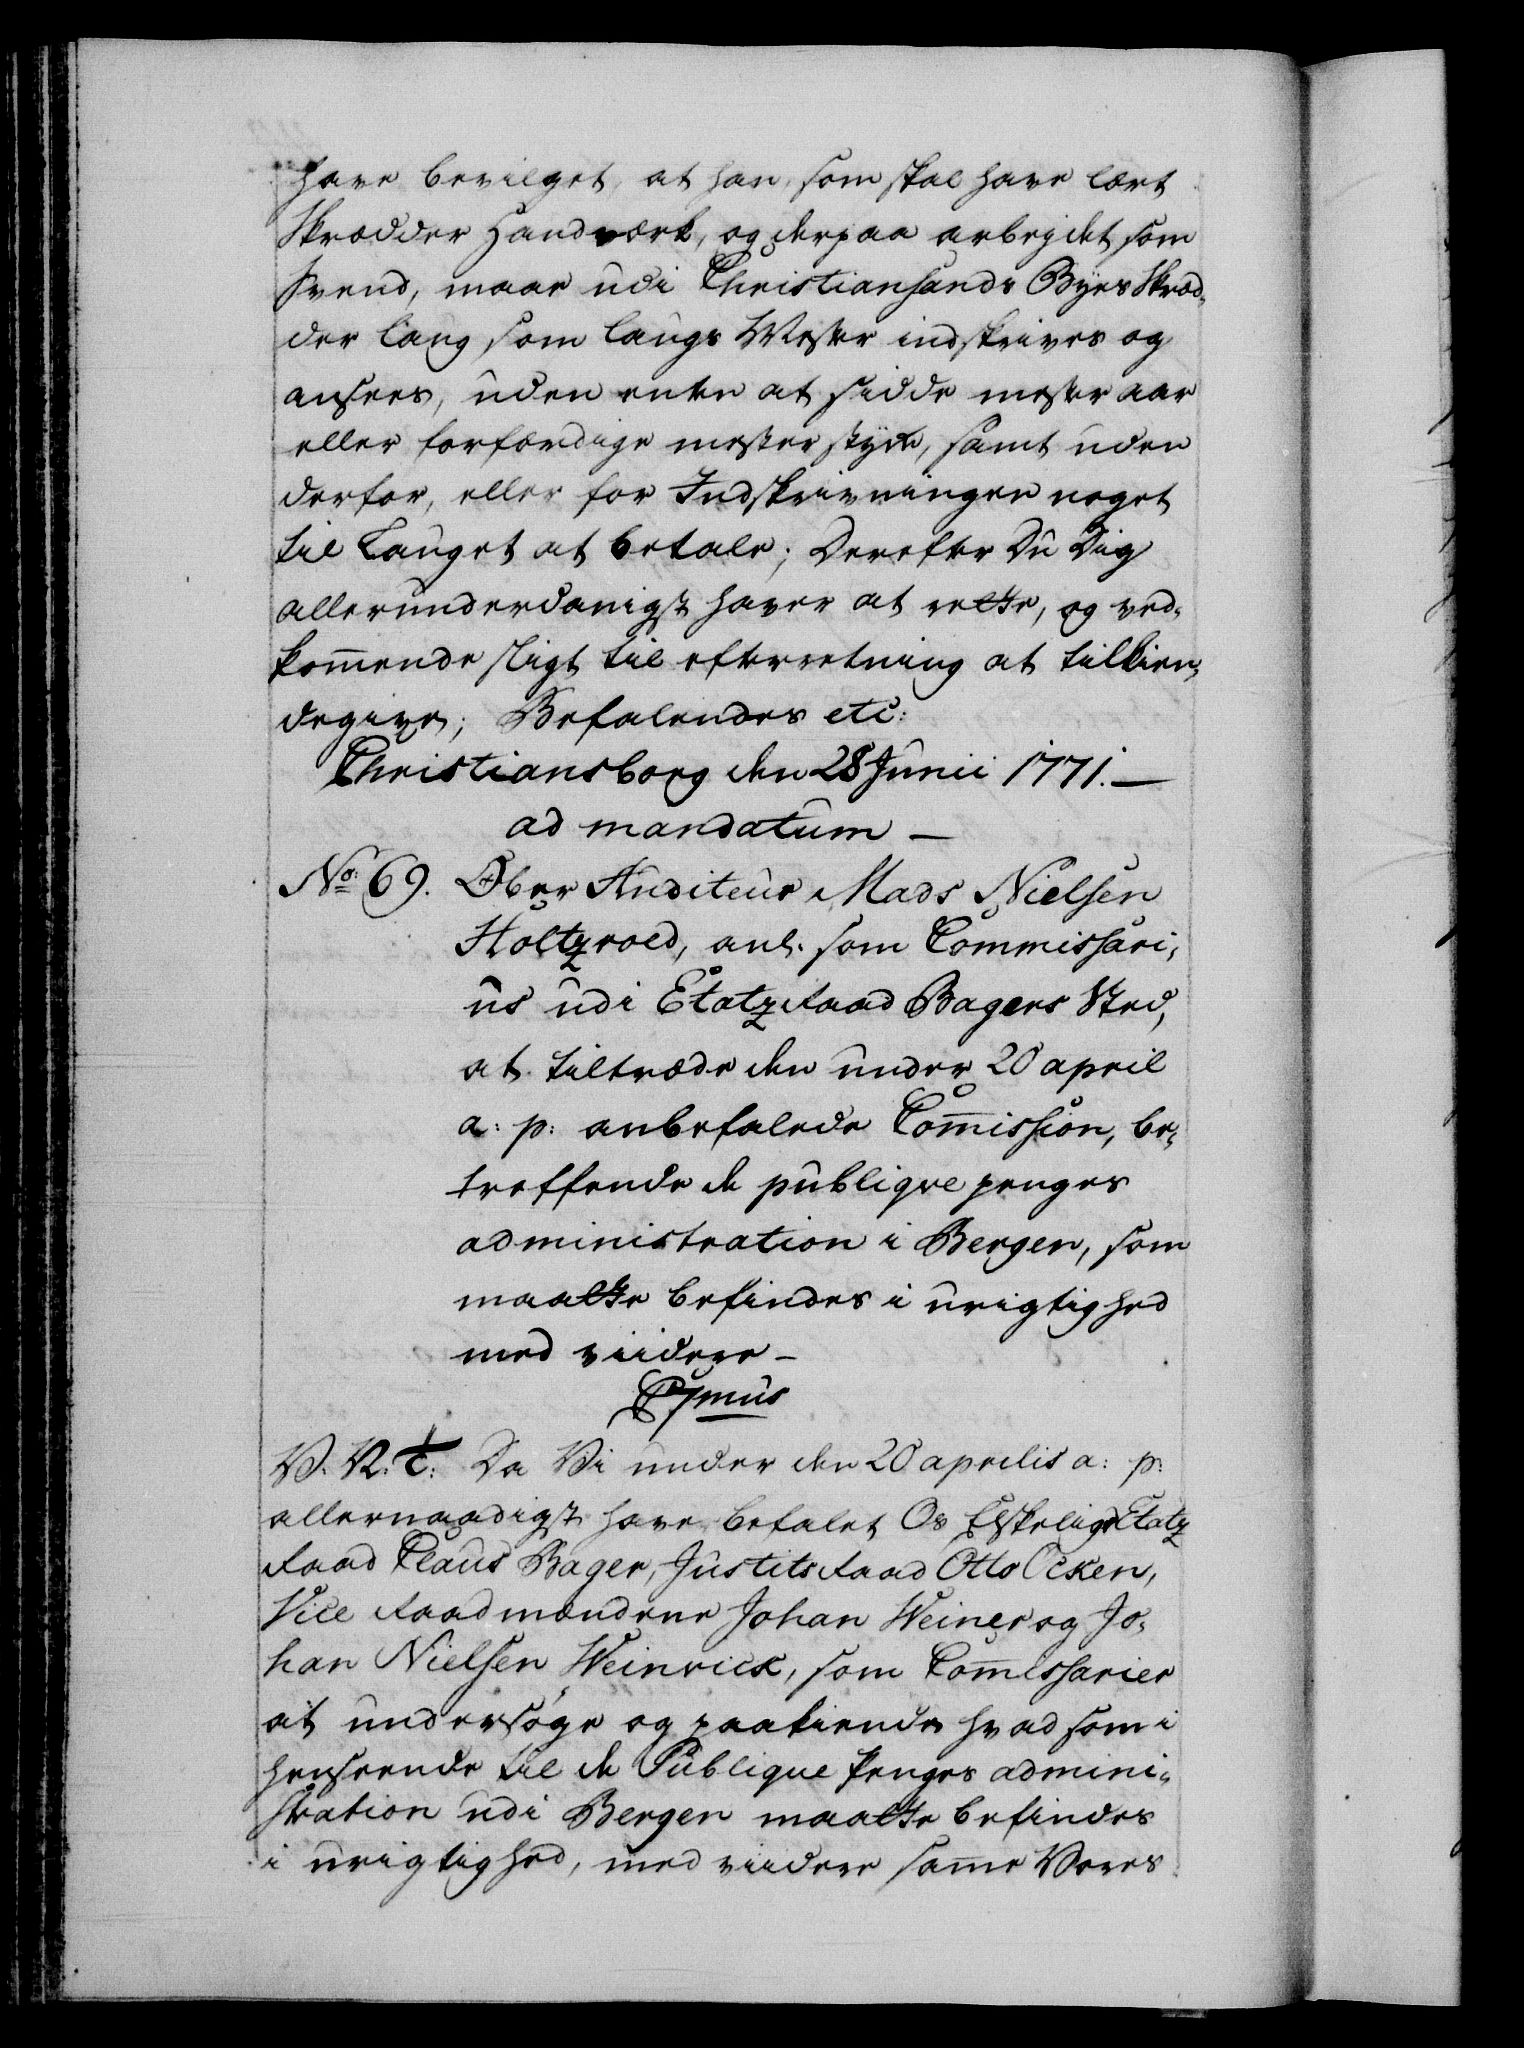 have bevilget, at han, som skal have lært
Skrædder Handværk, og derpaa arbejdet som
Svend, maae udi Christiansands Byes Skræd-
der laug som laugs Mester indskrives og
ansees, uden enten at sidde mester aar
eller forfærdige mester stykke, samt uden
derfor, eller for Indskrivningen noget
til Lauget at betale; Derefter Du Dig
allerunderdanigst haver at rette, og ved-
kom̅ende sligt til efterretning at tilkien-
degive; Befalendes etc:
Christiansborg den 28 Junii 1771. —
ad mandatum —
No. 69. Ober Auditeur Mads Nielsen
Holtzroed, anl. som Commissari-
us udi Etatz Raad Bagers Sted,
at tiltræde den under 20 april
a: p: anbefalede Com̅ission, be-
treffende de publiqve penges
administration i Bergen, som
maatte befindes i urigtighed
med viidere —
V. V. T: Da Vi under den 20 aprilis a: p:
allernaadigst have befalet Os Elskelige Etatz
Raad Claus Bager, Justits Raad Otto Ocken,
Vice Raadmændene Johan Weiner og Jo-
han Nielsen Weinrick, som Com̅issarier
at undersøge og paakiende hvad som i
henseende til de Publique Penges admini-
stration udi Bergen maatte befindes
i urigtighed, med viidere sam̅e Vores